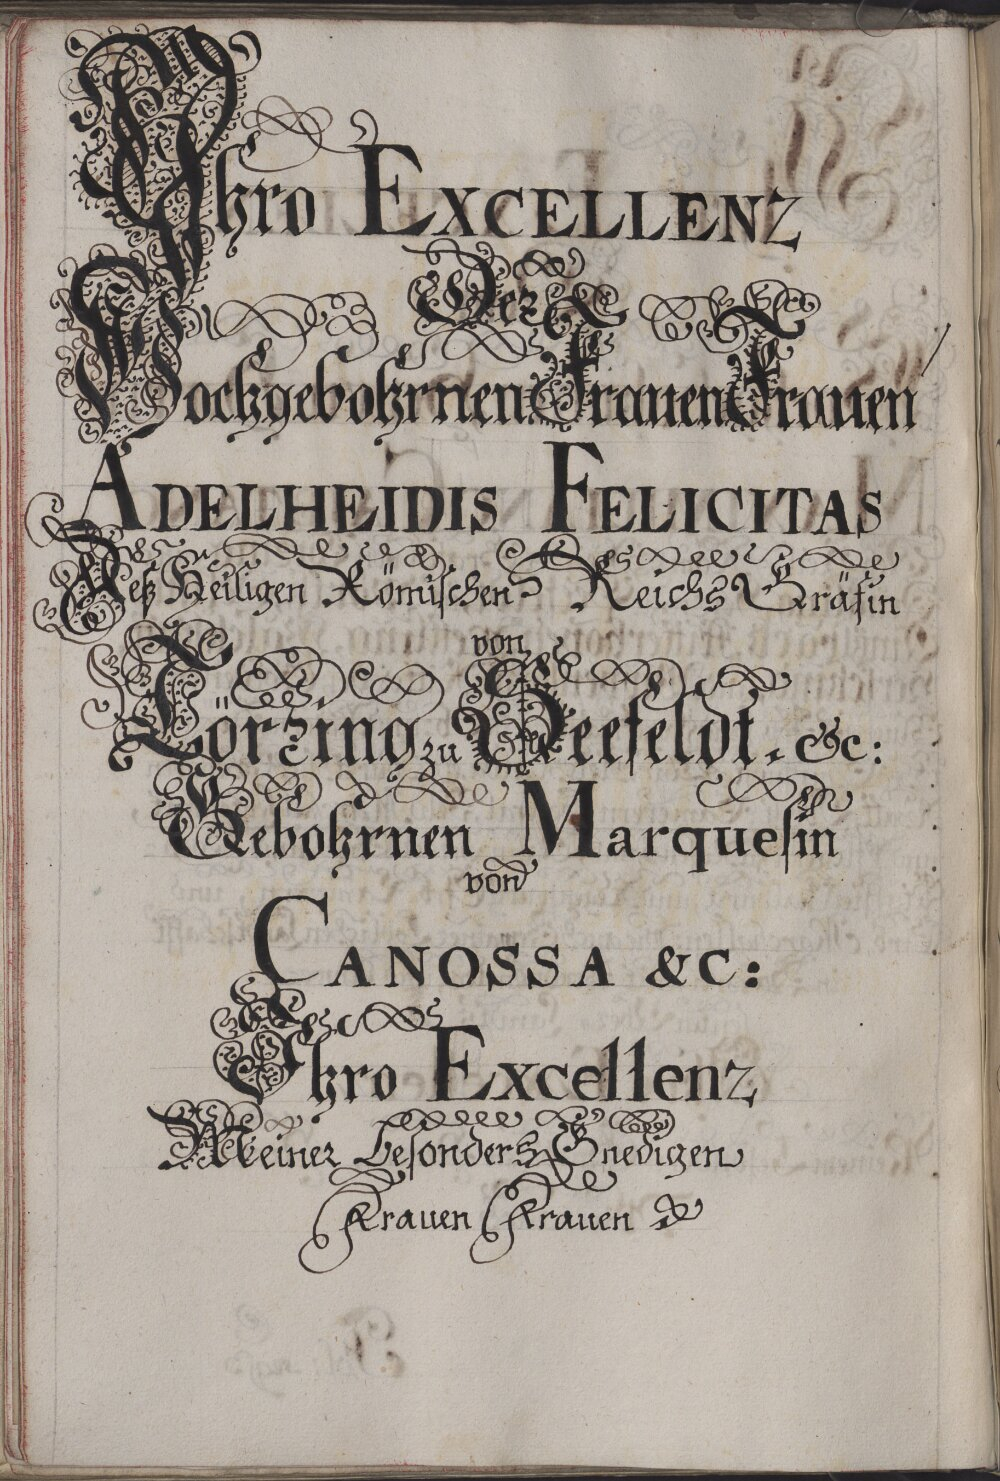 Ihro EXCELLENZ
Der
Hochgebohrnen Frauen Frauen
ADELHEIDIS FELICITAS
Deß Heiligen Römischen Reichs Gräfin
von
Törzing zu Seefeldt, &c:
Gebohrnen Marquesin
von
CANOSSA &C:
Ihro Excellenz
Meiner besonders Gnedigen
Frauen Frauen &